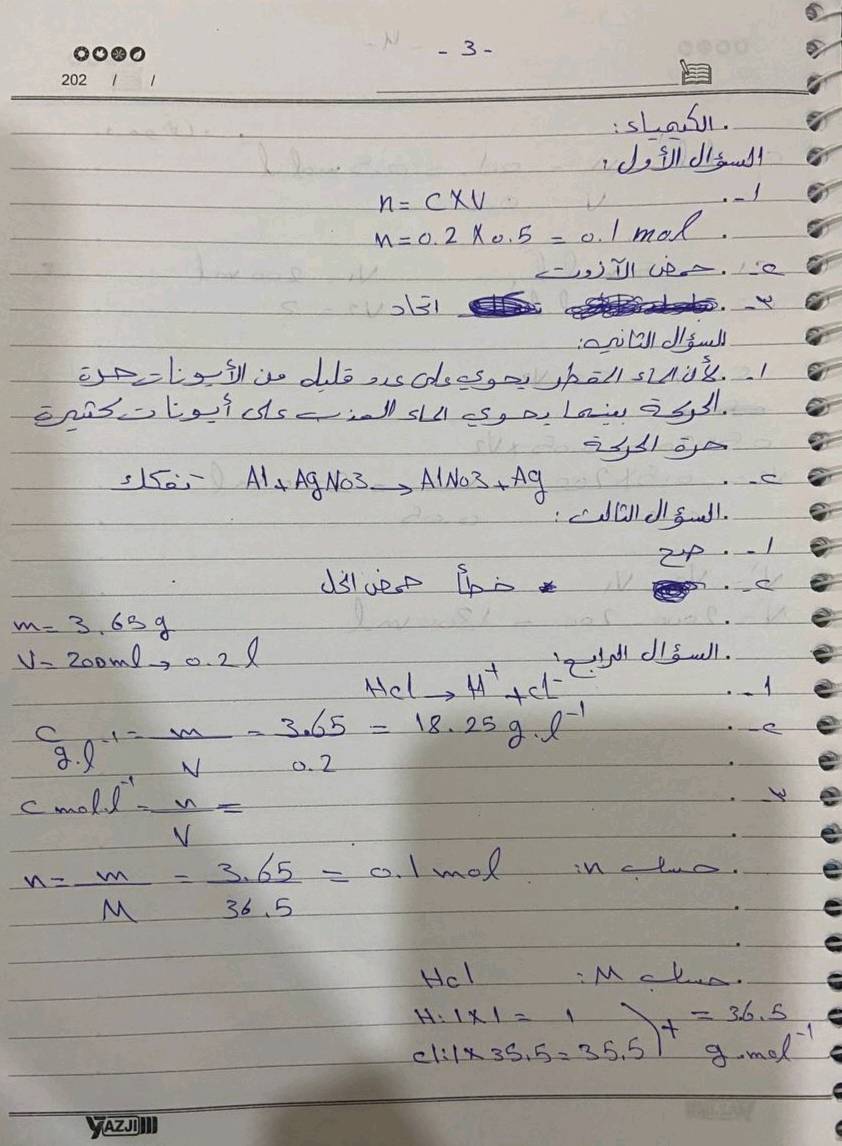 - 3 -
202 / /
الكيمياء:
السؤال الأول:
1- n = C×V
n = 0.2 × 0.5 = 0.1 mol
٢- حمض الآزوت
٣- اتحاد
السؤال الثاني:
1- لأن الماء المقطر يحوي على عدد قليل من الأيونات حرة
الحركة بينما يحوي الماء العذب على أيونات كثيرة
حرة الحركة
٢- Al + AgNO3 → AlNO3 + Ag تفكك
السؤال الثالث:
1- صح
٢- خطأ حمض الخل
m = 3.65 g
V = 200ml → 0.2 l
السؤال الرابع:
1- Hcl → H⁺ + cl⁻
٢- C g.l⁻¹ = m/V = 3.65/0.2 = 18.25 g.l⁻¹
٣- C mol.l⁻¹ = n/V =
حساب n: n = m/M = 3.65/36.5 = 0.1 mol
حساب M: Hcl
H: 1×1 = 1
cl: 1×35.5 = 35.5
+ = 36.5 g.mol⁻¹
YAZJI